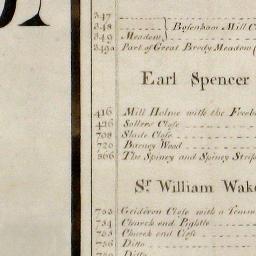 347
348 Bosenham Mill C
349 Meadow
349a Part of Great Bredy Meadow
Earl Spencer
416 Mill Holme with the
426 Sallers Close
708 Slade Close
720 Barney Wood
866 The Spiney and Spiney
Sr. William Wake
753 Close with a
754 Church end Pightle
755 Church end Close
756 Ditto
Ditto